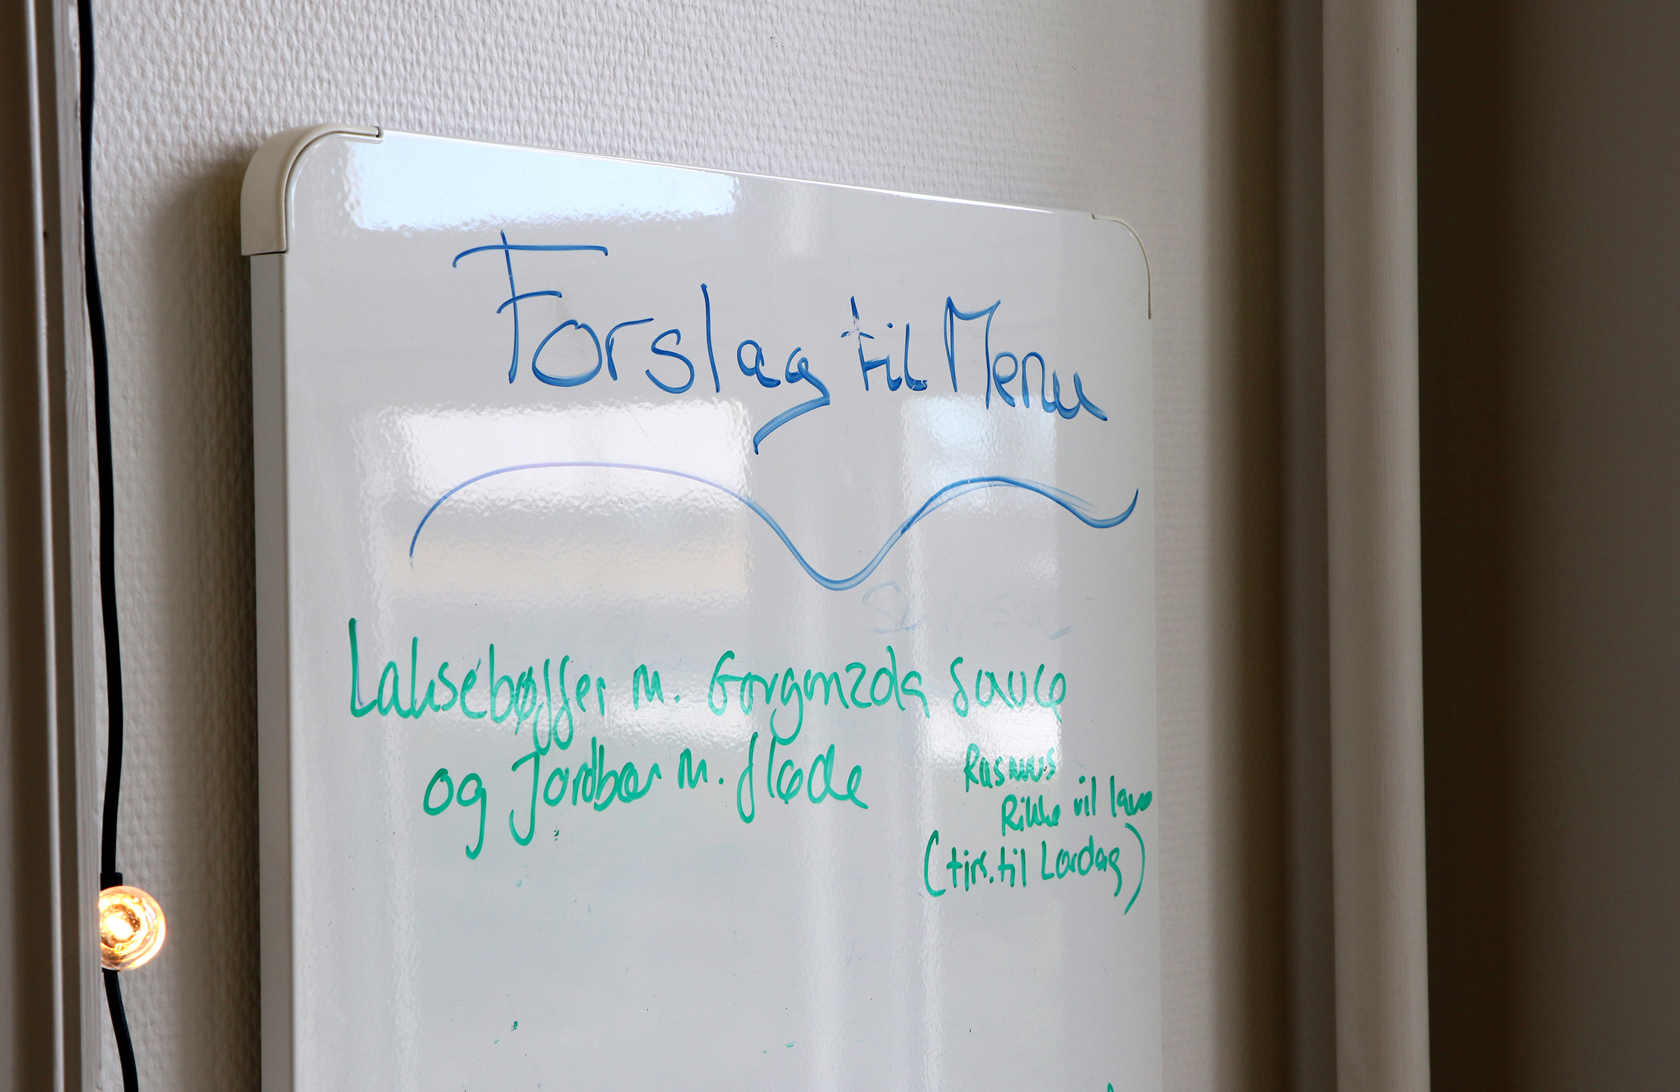 Forslag til Menu
Laksebøffer m. Gorgonzola Sauce
og Jordbær m. fløde
Rasmus
Rikke vil lave
(tirs. til Lørdag)